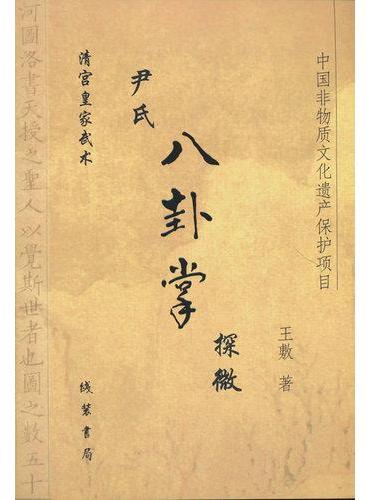 中国非物质文化遗产保护项目
清宫皇家武术
尹氏
八卦掌
探微
王敷 著
线装书局
河圖洛書天授之聖人以覺斯世者也圖之數五十